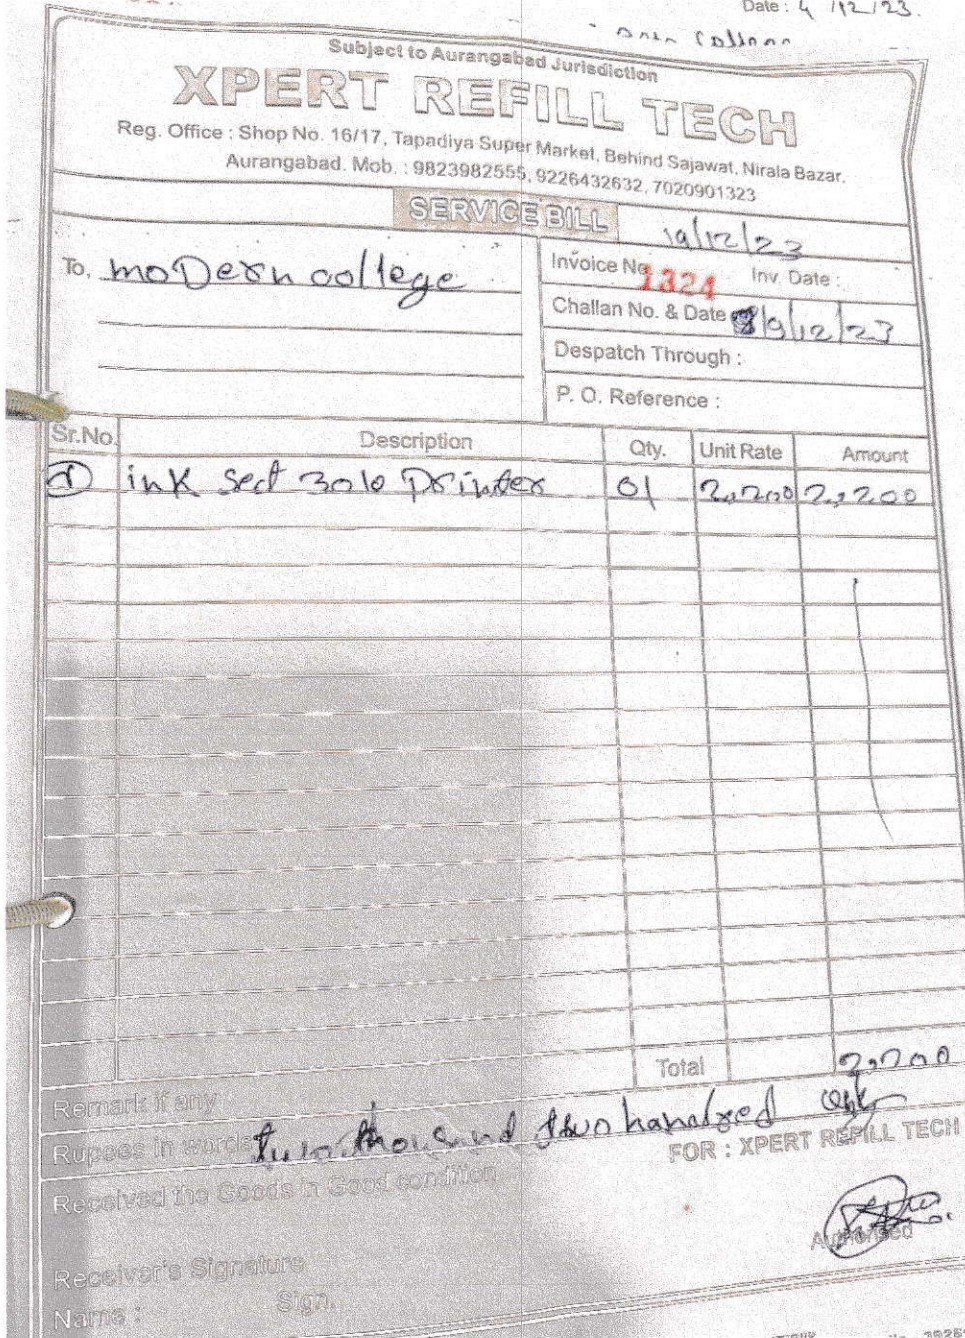 Date : 4 /12/23.
Subject to Aurangabad Jurisdiction
XPERT REFILL TECH
Reg. Office : Shop No. 16/17, Tapadiya Super Market, Behind Sajawat, Nirala Bazar.
Aurangabad. Mob. : 9823982555, 9226432632, 7020901323
SERVICE BILL
19/12/23
To, moDern college
Invoice No. 1324 Inv. Date :
Challan No. & Date 19/12/23
Despatch Through :
P. O. Reference :
Sr.No. Description Qty. Unit Rate Amount
① ink sect 3010 Printer 01 2,200 2,200
Total 2,200
Remark if any
Rupees in words two thousand two handred only
FOR : XPERT REFILL TECH
Received the Goods in Good condition
Authorised
Receiver's Signature
Name : Sign.